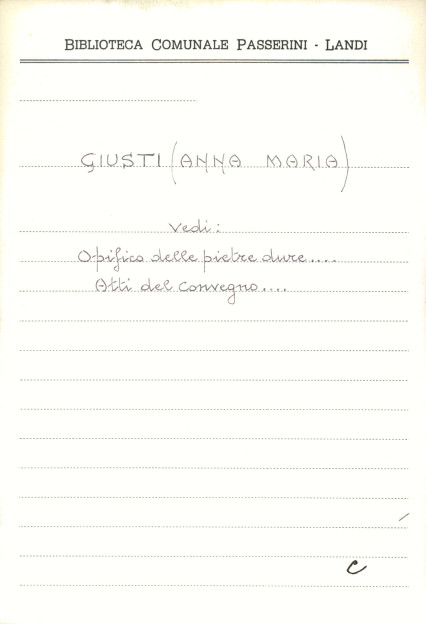 BIBLIOTECA COMUNALE PASSERINI - LANDI
GIUSTI (ANNA MARIA)
Vedi:
Opificio delle pietre dure....
Atti del Convegno....
C